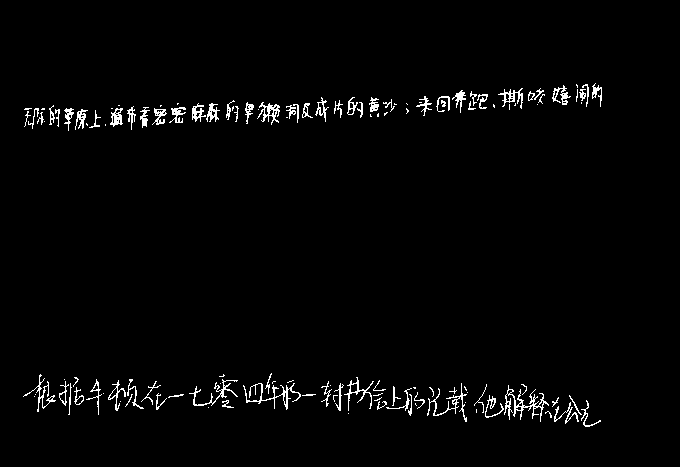 无际的草原上,遍布着密密麻麻的旱獭洞及成片的黄沙;来回奔跑、撕咬嬉闹的
根据牛顿在一七零四年的一封书信上的记载他解释在公元